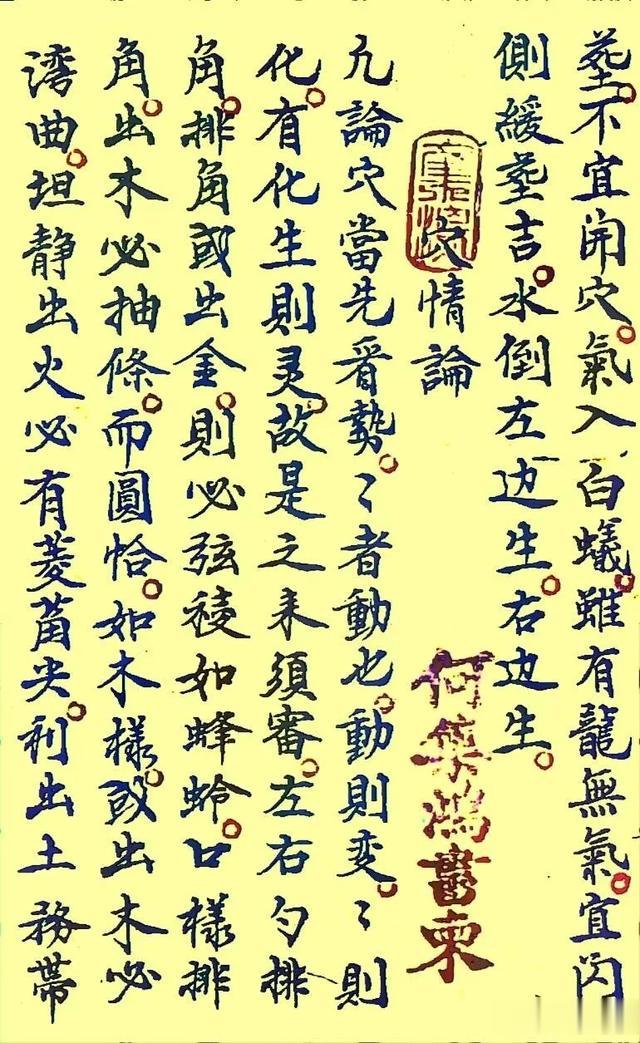 塟不宜開穴氣入白蟻雖有龍無氣宜閃
側緩塟吉水倒左边生右边生
穴情論
凢論穴當先看勢〻者動也動則变〻則
化有化生則灵故是之来須審左右勺排
角排角或出金則必弦稜如蜂蛉口樣排
角出木必抽條而圓恰如木樣或出木必
湾曲坦静出火必有菱葘尖利出土務帶